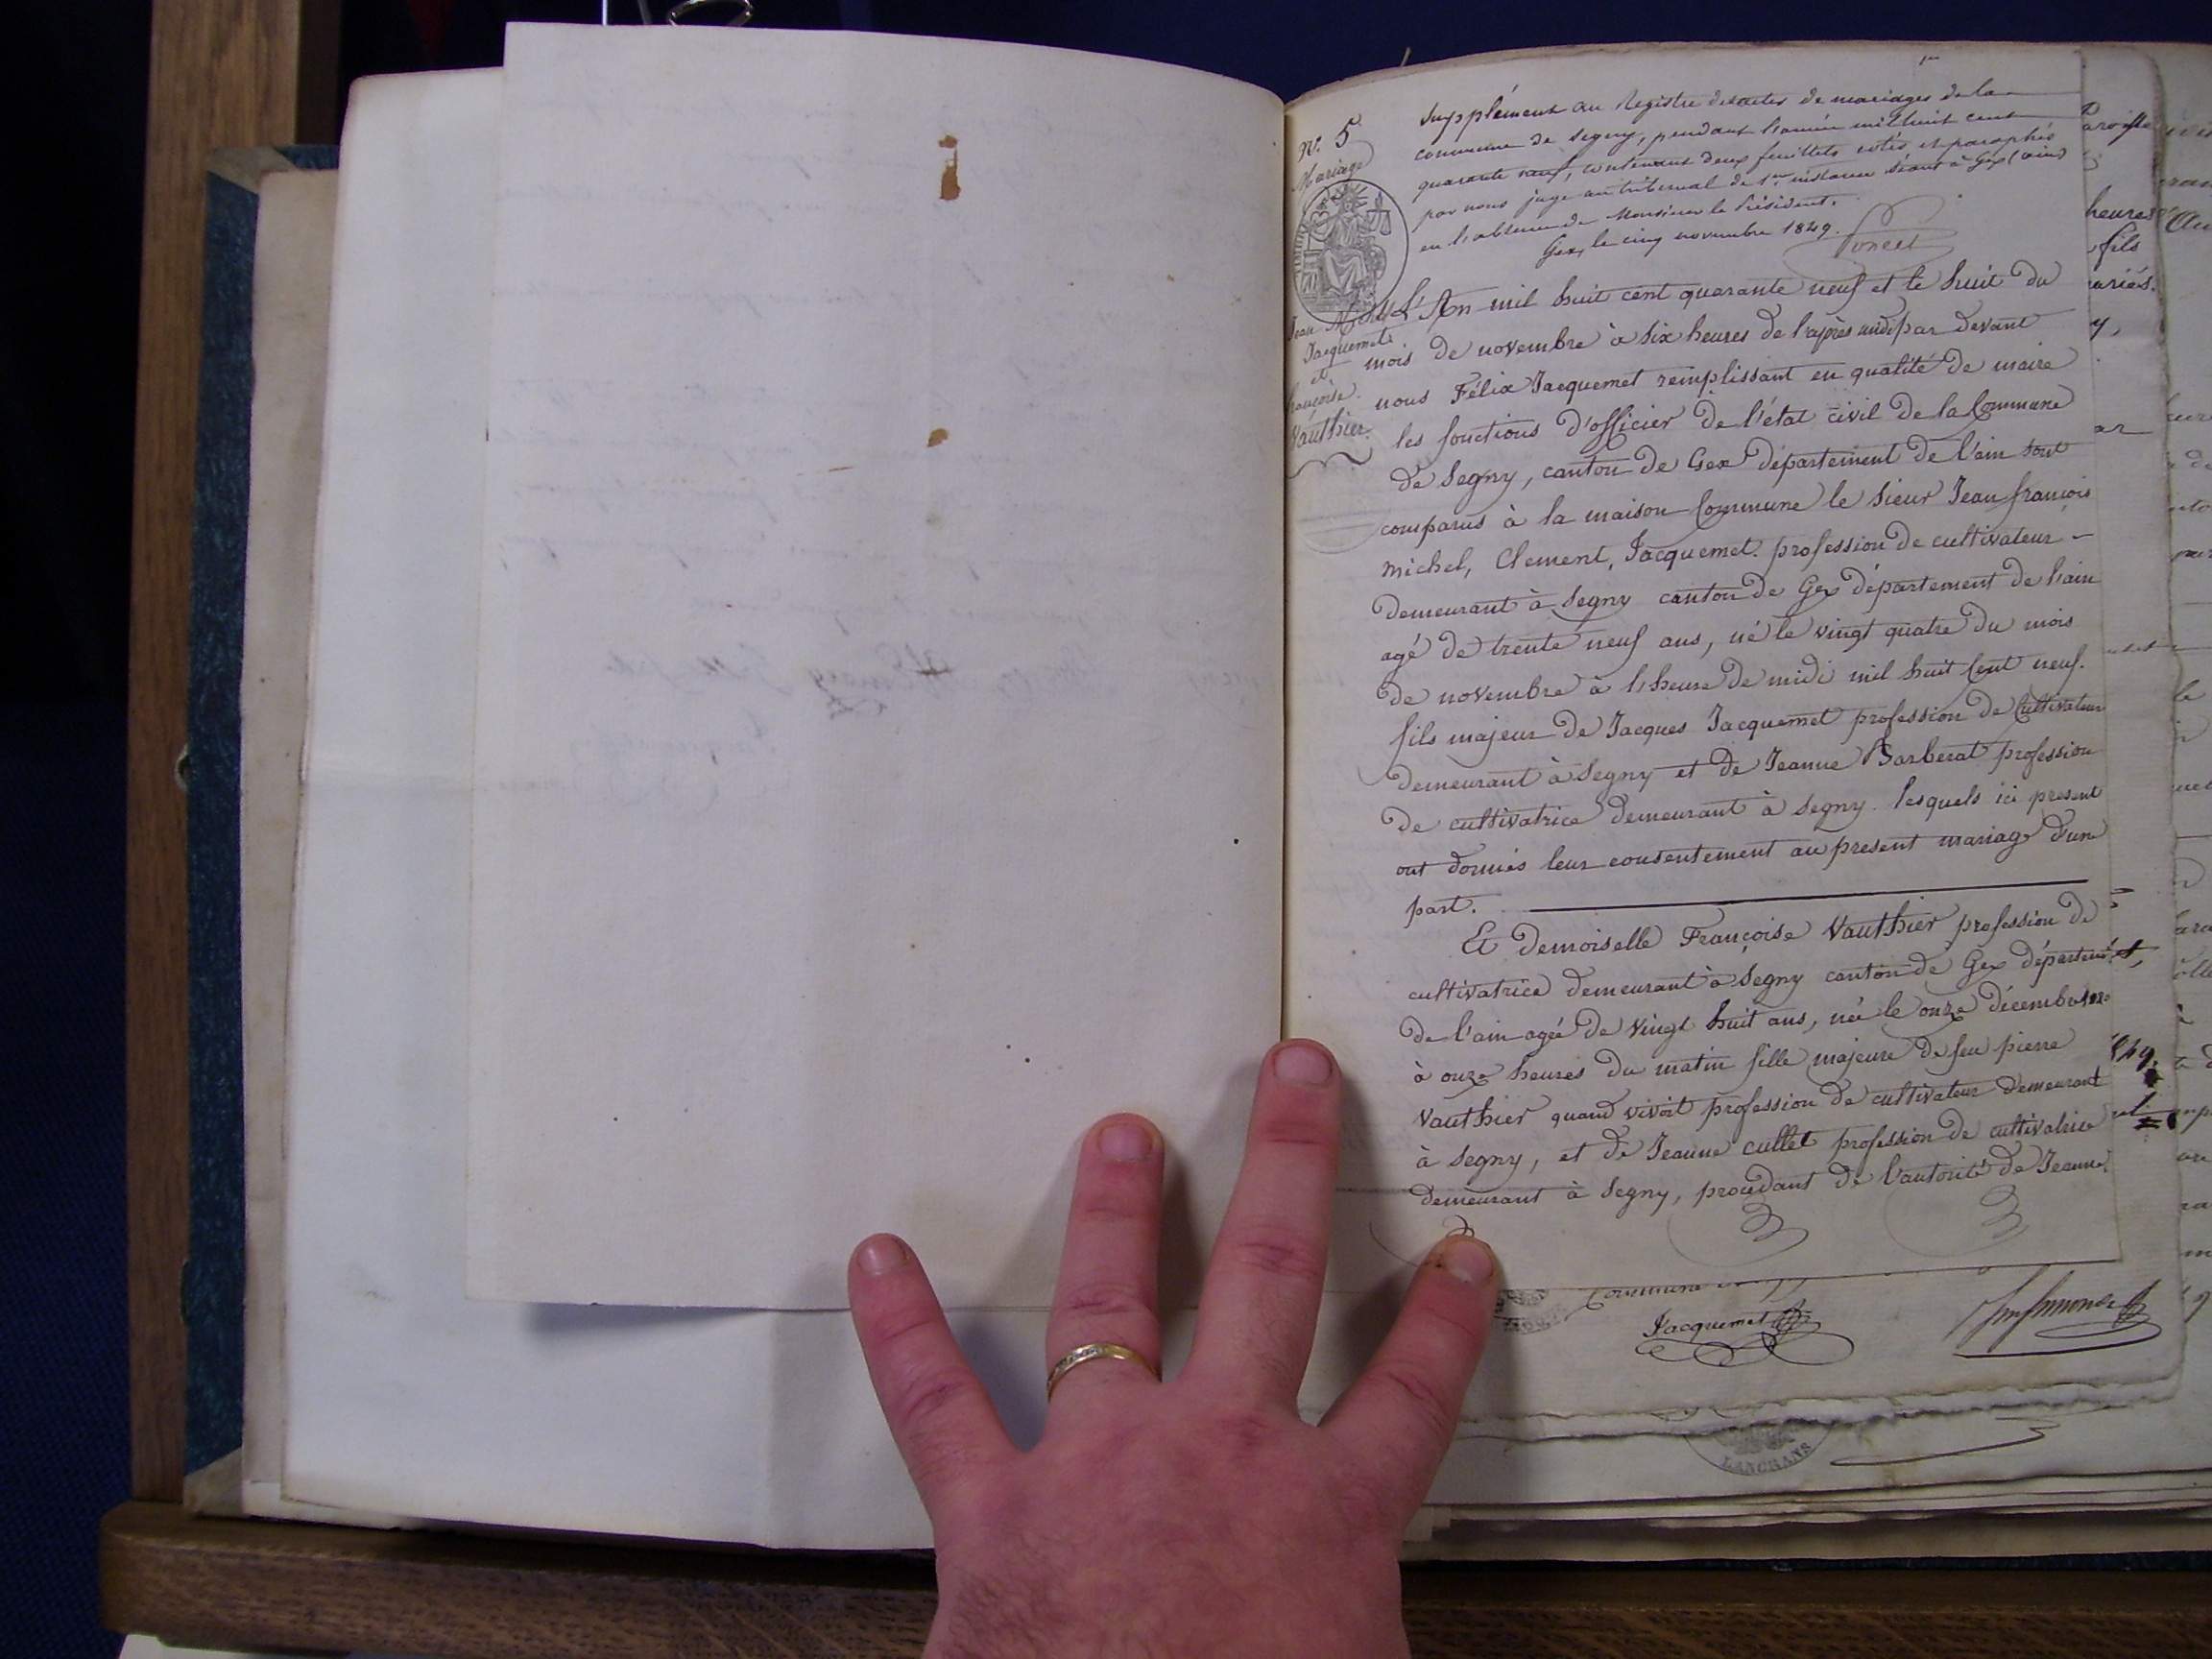 Supplément au Registre des actes de mariages de la
commune de Segny, pendant l'année mil huit cent
quarante neuf, contenant deux feuillets cotés et paraphés
par nous juge au tribunal de 1ère instance séant à Gex (ain)
en l'absence de Monsieur le Président.
Gex, le cinq novembre 1849.
Poncet
N. 5
Mariage
Jean Michel
Jacquemet
et
françoise
Vauthier
L'An mil huit cent quarante neuf et le huit du
mois de novembre à six heures de l'après midi par devant
nous Félix Jacquemet remplissant en qualité de maire
les fonctions d'officier de l'état civil de la Commune
de Segny, canton de Gex département de l'ain sont
comparus à la maison Commune le Sieur Jean françois
michel, Clement, Jacquemet. profession de cultivateur -
demeurant à Segny canton de Gex département de l'ain
agé de trente neuf ans, né le vingt quatre du mois
de novembre à l'heure de midi mil huit Cent neuf.
fils majeur de Jacques Jacquemet profession de Cultivateur
demeurant à Segny et de Jeanne Barberat profession
de cultivatrice demeurant à Segny. lesquels ici present
ont donnés leur consentement au present mariage d'une
part.
Et demoiselle Françoise Vauthier profession de
cultivatrice demeurant à Segny canton de Gex départemt
de l'ain agée de vingt huit ans, née le onze décembre
à onze heures du matin fille majeure de feu pierre
Vauthier quand vivoit profession de cultivateur demeurant
à Segny, et de Jeanne cullet profession de cultivatrice
demeurant à Segny, procédant de l'autorité de Jeanne
Jacquemet
LANCRANS
heures
fils